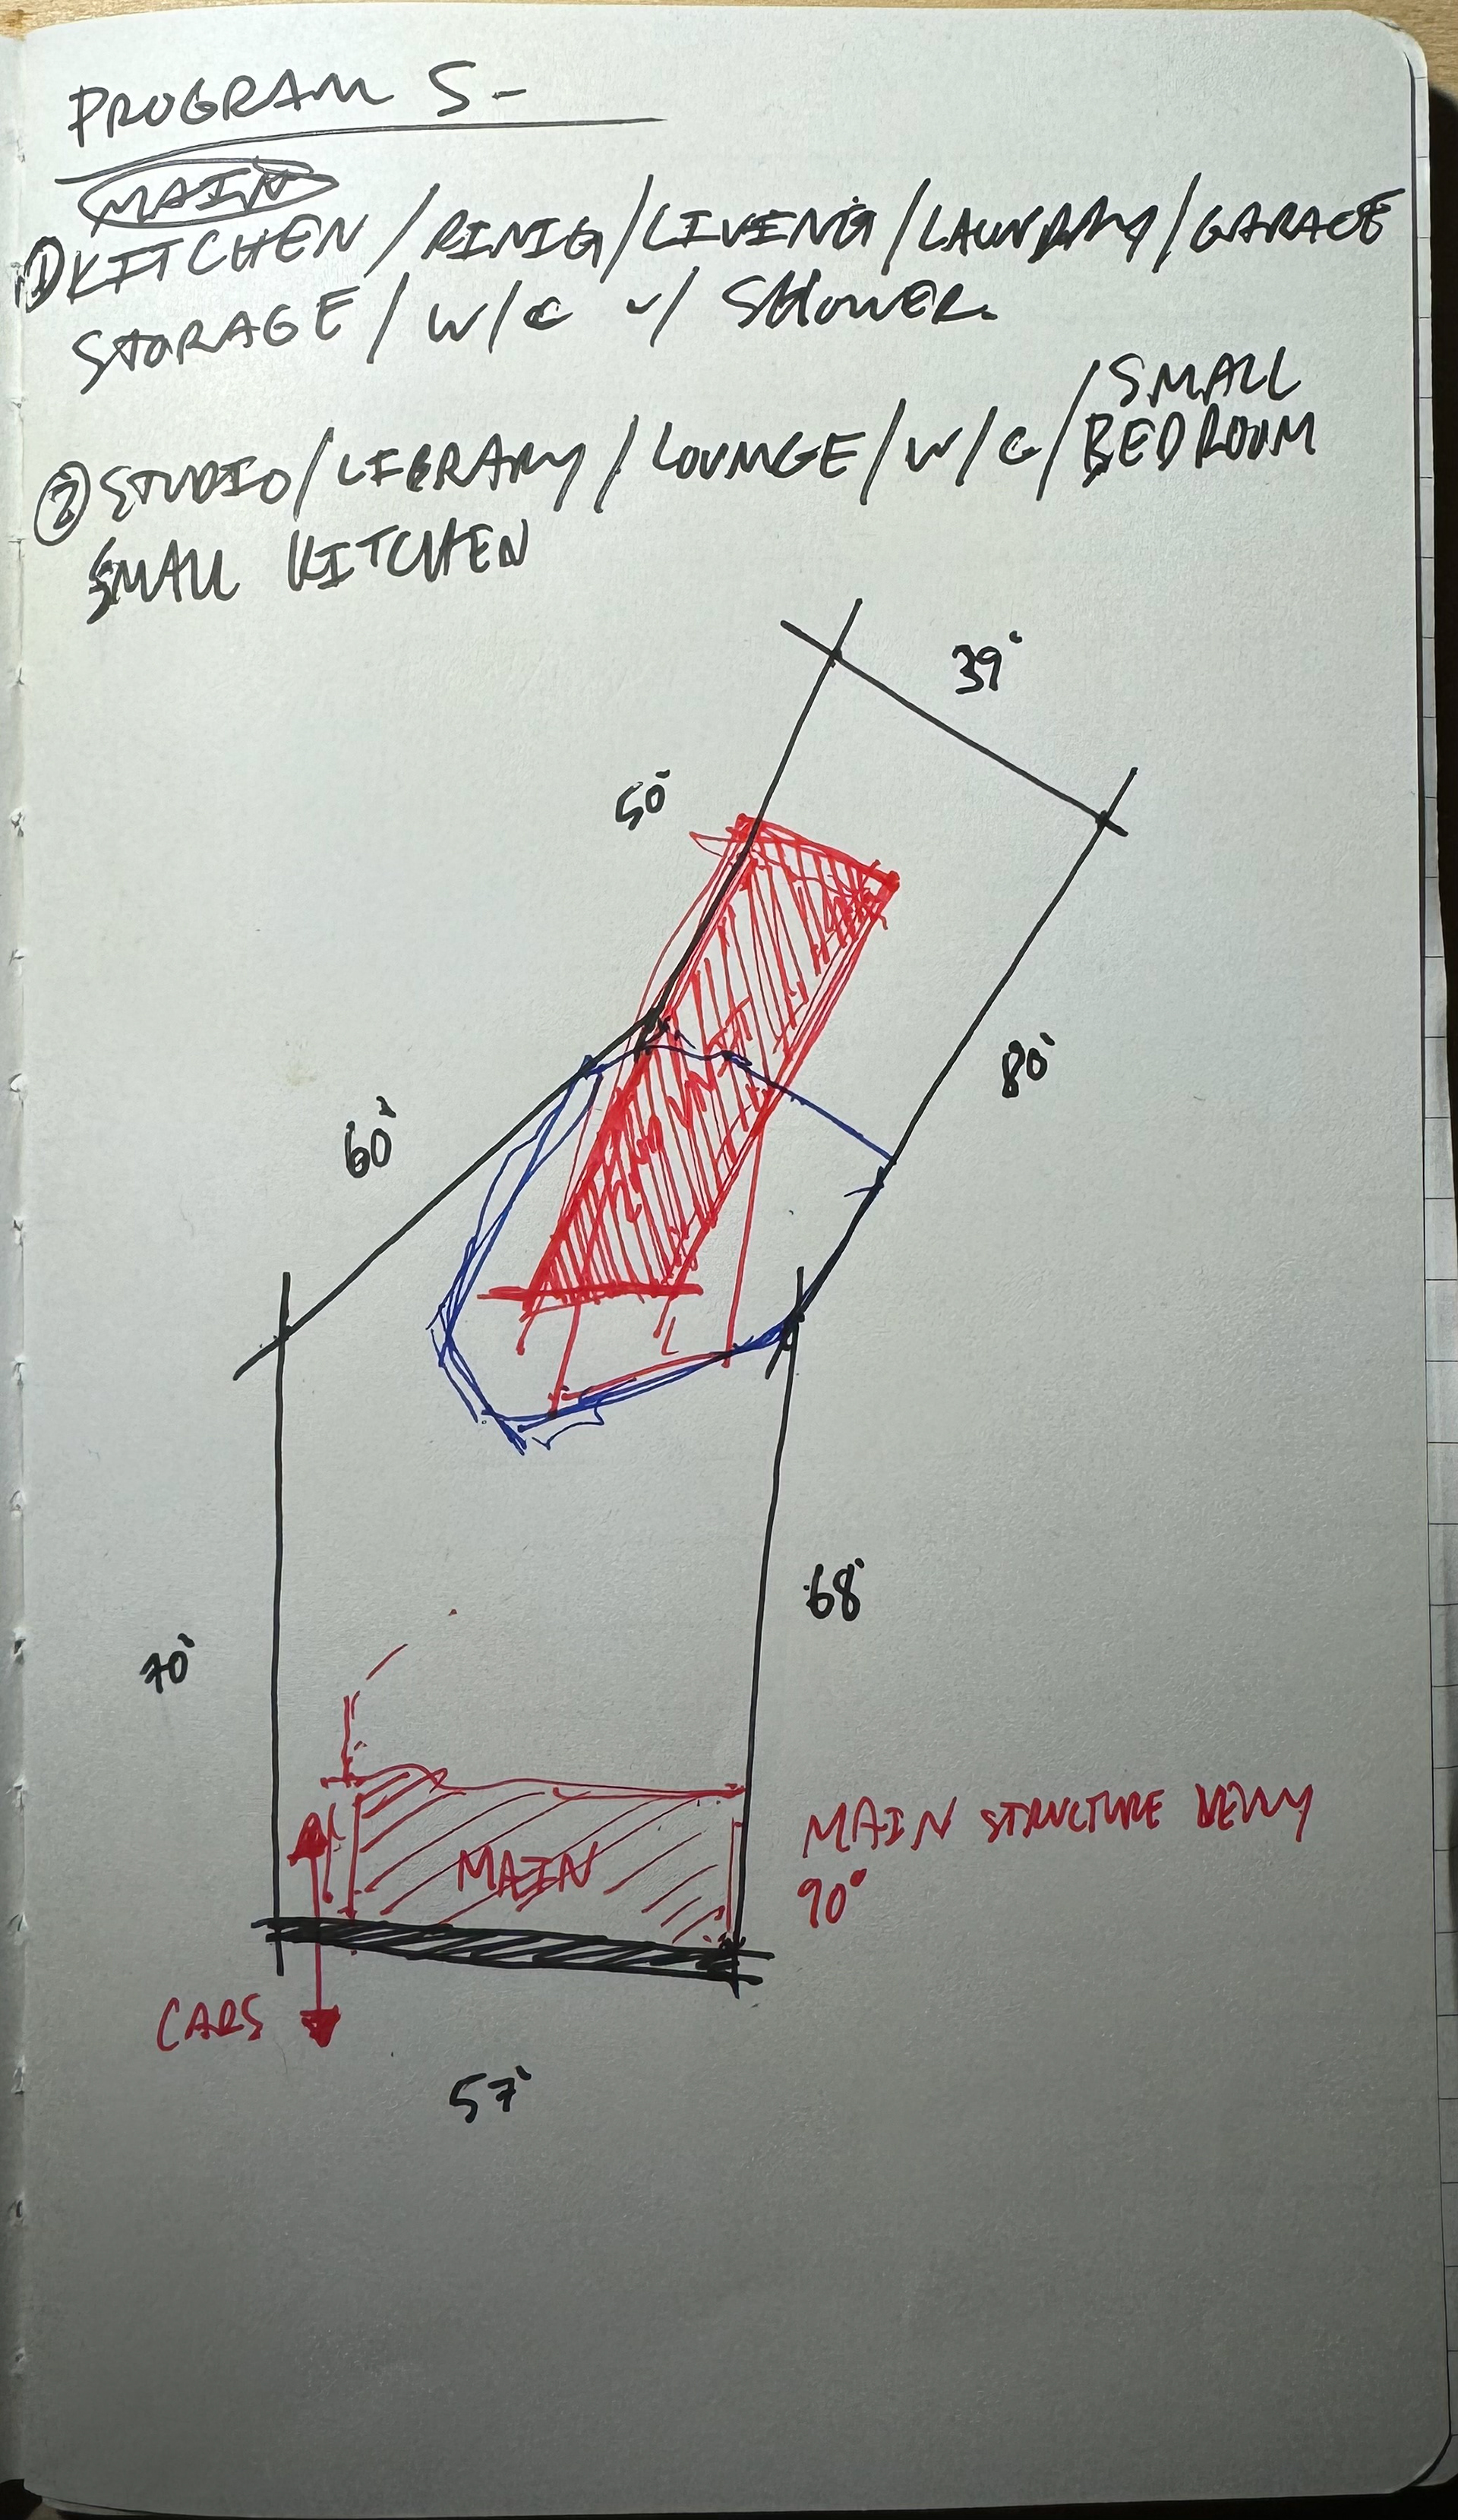 PROGRAM S-
MAIN
① KITCHEN / RINIG / LIVING / LAUNDRY / GARAGE
STORAGE / W/C w/ SHOWER.
SMALL
② STUDIO / LIBRARY / LOUNGE / W/C / BEDROOM
SMALL KITCHEN
39'
50'
80'
60'
68'
70'
MAIN STRUCTURE
MAIN
90°
CARS
57'